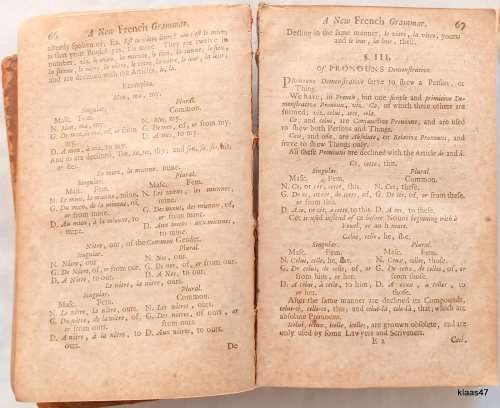 66 A New French Grammar.
already spoken of; Ex.
that your Books? yes, 'tis mine. They are twelve in
number, viz. le mien, la mienne, le tien, la tienne, le sien,
la sienne, le nôtre, la nôtre, le vôtre, la vôtre, le leur, la leur,
and are declined with the Articles, le, la.
Examples.
Mon, ma, my.
Singular. Plural.
Masc. Fem. Common.
N. Mon, ma, my. N. Mes, my.
G. De mon, de ma, of, or from G. De mes, of, or from, my.
my.
D. A mon, à ma, to my. D. A mes, to my.
And so are declined, Ton, ta, tes, thy; and son, sa, ses, his,
or her.
Le mien, la mienne, mine.
Singular. Plural.
Masc. Fem. Masc. Fem.
N. Le mien, la mienne, mine. N. Les miens, les miennes,
G. Du mien, de la mienne, of, mine.
or from mine. G. Des miens, des miennes, of,
D. Au mien, à la mienne, to or from mine.
mine. D. Aux miens, aux miennes,
to mine.
Nôtre, our, of the Common Gender.
Singular. Plural.
N. Nôtre, our N. Nos, our.
G. De Nôtre, of, or from our. G. De nos, of, or from our.
D. A Nôtre, to our. D. A nos, to our.
Le nôtre, la nôtre, ours.
Singular. Plural.
Masc. Fem. Common.
N. Le nôtre, la nôtre, ours. N. Les nôtres, ours.
G. Du nôtre, de la nôtre, of, G. Des nôtres, of ours, or
or from ours. from ours.
D. Au nôtre, à la nôtre, to D. Aux nôtres, to ours.
ours.
De
A New French Grammar. 67
Decline in the same manner, le vôtre, la vôtre, yours;
and le leur, la leur, theirs.
§. III.
Of PRONOUNS Demonstrative.
Pronouns Demonstrative serve to shew a Person, or
Thing.
We have, in French, but one simple and primitive De-
monstrative Pronoun, viz. Ce, of which three others are
formed; viz. celui, ceci, cela.
Ce, and celui, are Conjunctive Pronouns, and are used
to shew both Persons and Things.
Ceci, and cela, are Absolute, or Relative Pronouns, and
serve to shew Things only.
All these Pronouns are declined with the Article de and à.
Ce, cette, this.
Singular. Plural.
Masc. Fem. Common.
N. Ce, or cet, cette, this. N. Ces, these.
G. De ce, de cet, de cette, of, G. De ces, of, or from these.
or from this.
D. A ce, or cet, à cette, to this. D. A ces, to these.
Cet is used instead of ce before Nouns beginning with a
Vowel, or an h mute.
Celui, celle, he, she.
Singular. Plural.
Masc. Fem. Masc. Fem.
N. Celui, celle, he, she. N. Ceux, celles, those.
G. De celui, de celle, of, or G. De ceux, de celles, of, or
from him, or her. from those.
D. A celui, à celle, to him, D. A ceux, à celles, to
or her. those.
After the same manner are declined its Compounds,
celui-ci, celle-ci, this; and celui-là, celle-là, that; which are
absolute Pronouns.
Icelui, iceux, icelle, icelles, are grown obsolete, and are
only used by some Lawyers and Scriveners.
E 2 Ceci,
klaas47